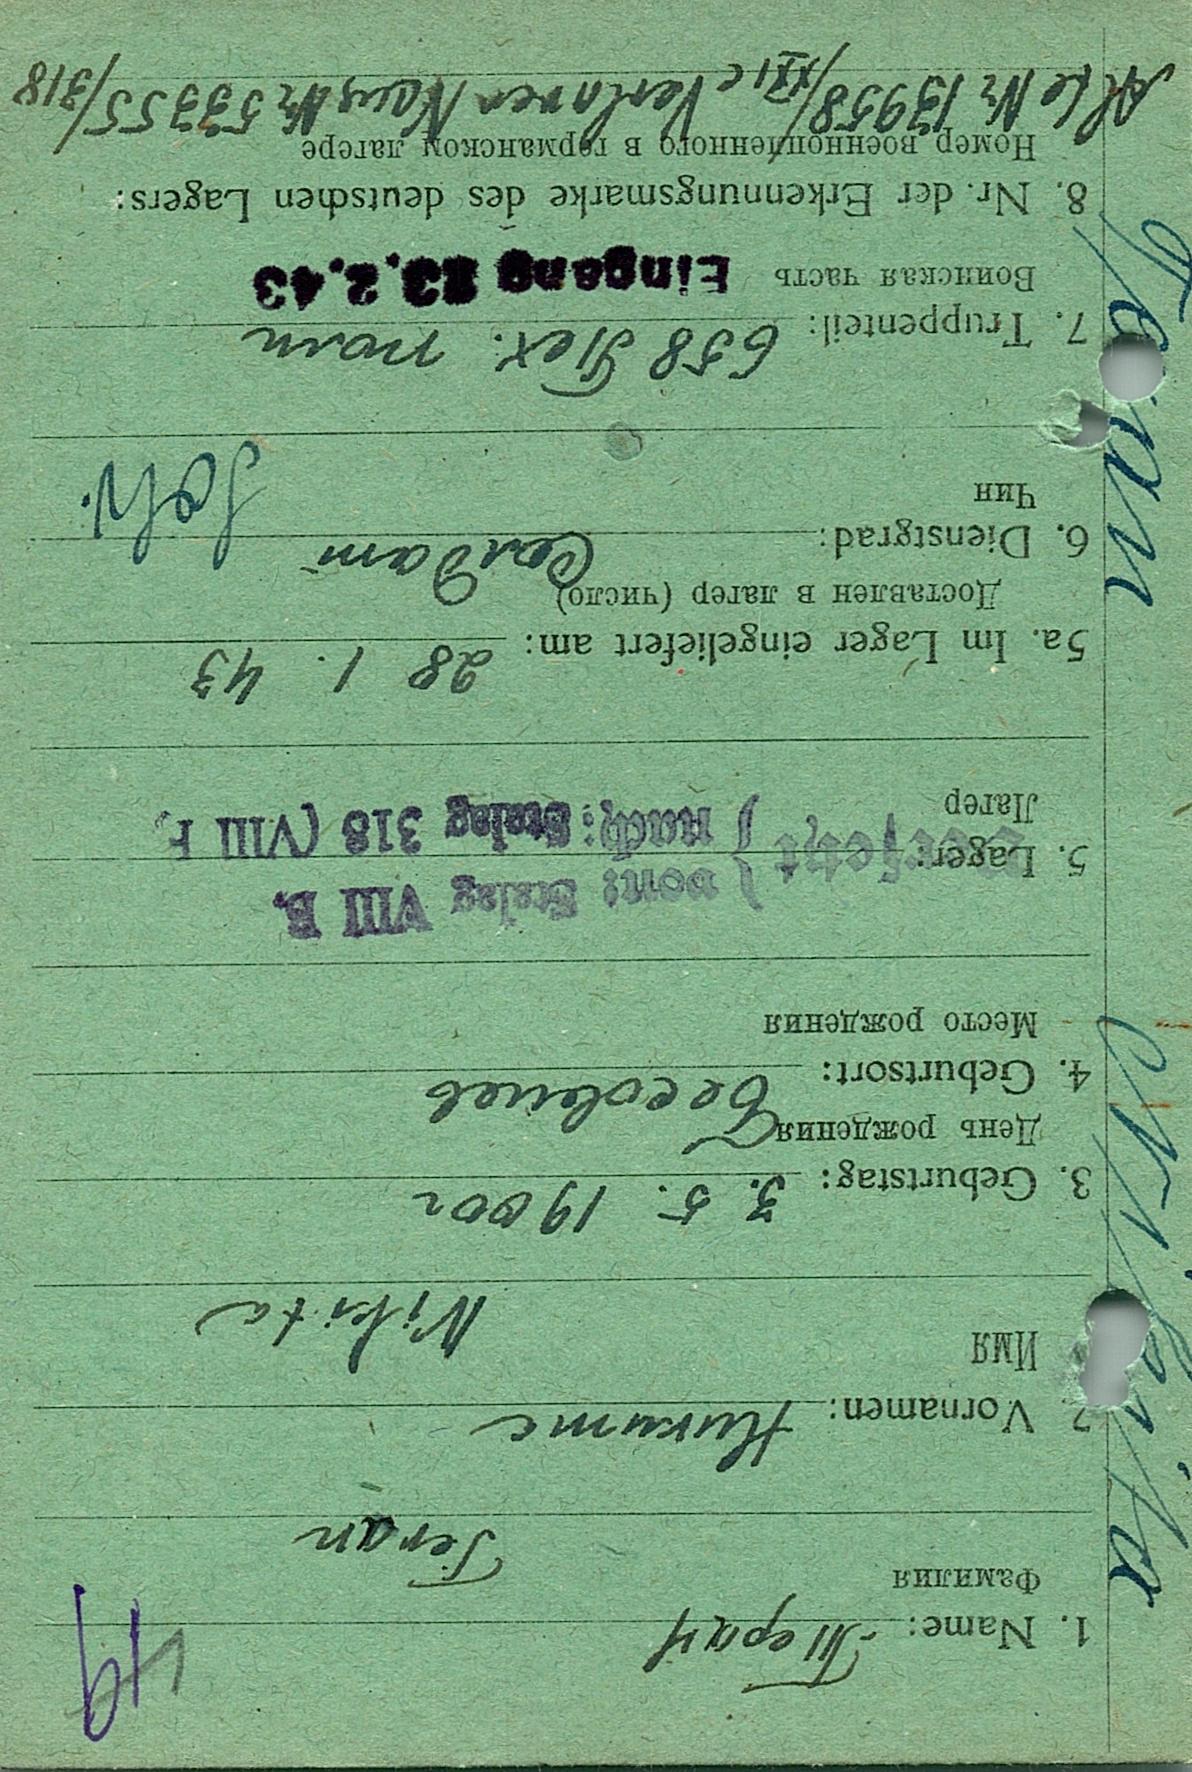 49
1. Name: Теран
Фамилия
Teran
2. Vornamen: Никите
Имя
Nikita
3. Geburtstag: 3. 5. 1900г
День рождения
4. Geburtsort:
Место рождения
von: Stalag VIII B.
5. Lager: Versetzt } nach: Stalag 318 (VIII F.
Лагер
5a. Im Lager eingeliefert am: 28 1. 43
Доставлен в лагер (число)
6. Dienstgrad: Солдат Sold.
Чин
7. Truppenteil: 658 полк
Воинская часть Eingang 23.2.43
8. Nr. der Erkennungsmarke des deutschen Lagers:
Номер военнопленного в германском лагере
Alte Nr 13958/XXI c Verloren Neue Nr 53355/318
Teran Nikita